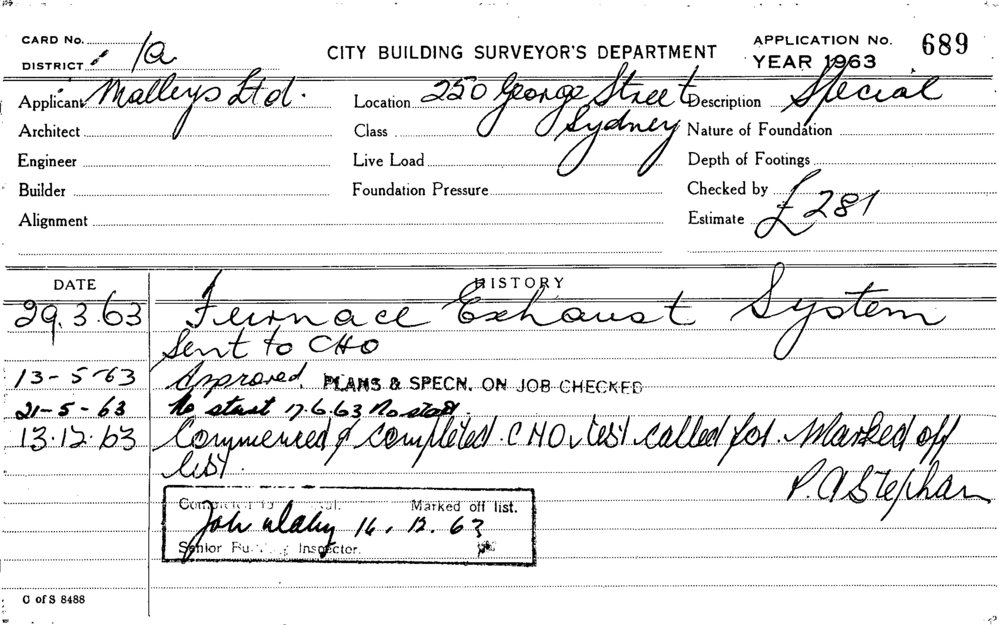 CARD No.
DISTRICT 1a
CITY BUILDING SURVEYOR'S DEPARTMENT
APPLICATION No. 689
YEAR 1963
Applicant Malleys Ltd.
Location 250 George Street
Sydney
Description Special
Architect
Class
Nature of Foundation
Engineer
Live Load
Depth of Footings
Builder
Foundation Pressure
Checked by
Alignment
Estimate £281
DATE
HISTORY
29.3.63 Furnace Exhaust System
Sent to CHO
13-5-63 Approved. PLANS & SPECN. ON JOB CHECKED
21-5-63 No start 17.6.63 No start.
13.12.63 Commenced & completed. CHO. test called for. Marked off
list.
P. A Stephan
Marked off list.
16.12.63
Senior Inspector.
C of S 8488